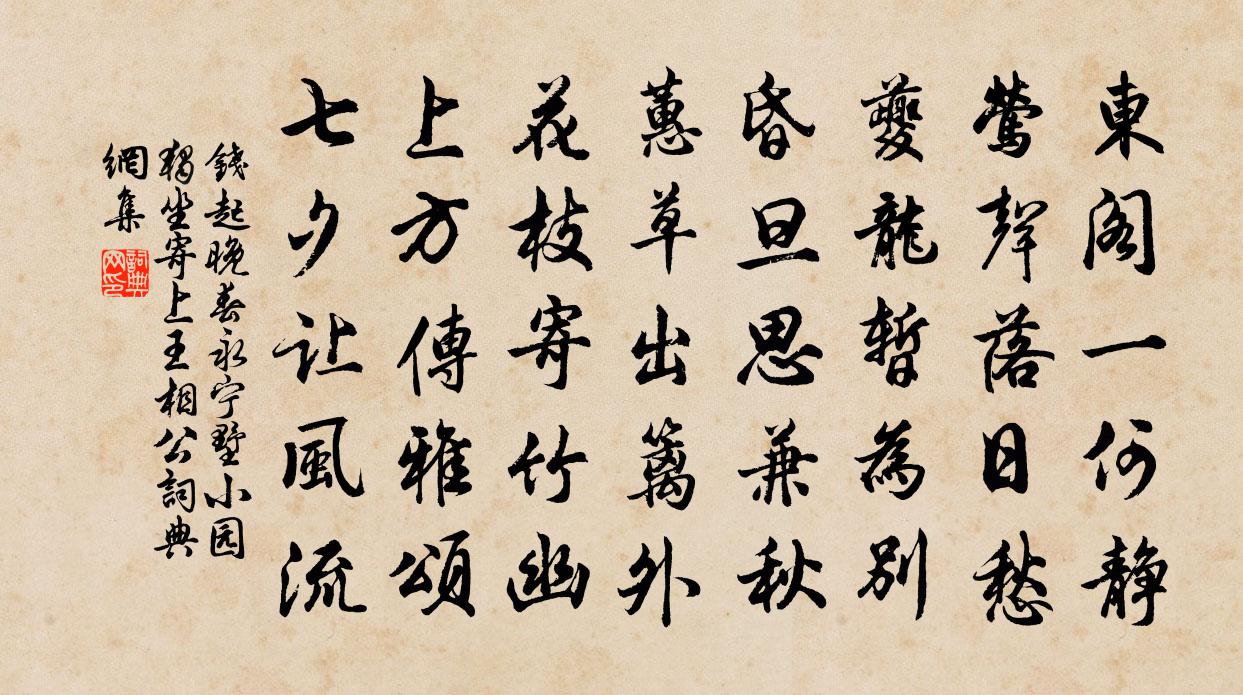 東阁一何静
鶯聲落日愁
夔龍暫為別
昏旦思兼秋
蕙草出籬外
花枝寄竹幽
上方傳雅頌
七夕让風流
錢起晚春永宁墅小园
獨坐寄上王相公詞典
網集
詞典
网印